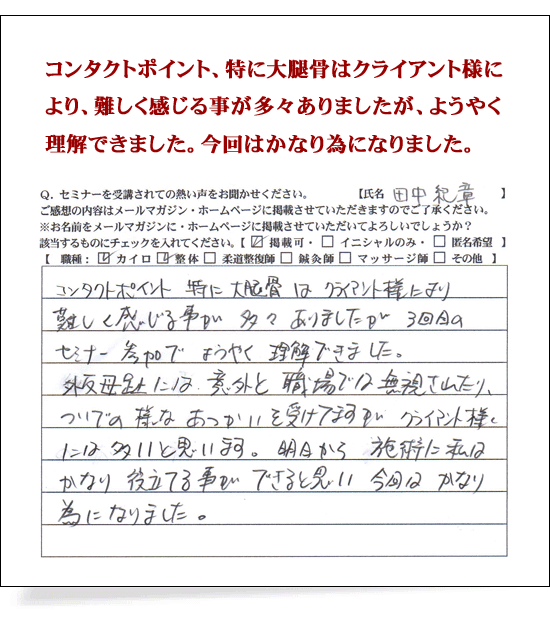 コンタクトポイント、特に大腿骨はクライアント様に
より、難しく感じる事が多々ありましたが、ようやく
理解できました。今回はかなり為になりました。
Q. セミナーを受講されての熱い声をお聞かせください。 【氏名 田中 紀章 】
ご感想の内容はメールマガジン・ホームページに掲載させていただきますのでご了承ください。
※お名前をメールマガジン・ホームページに掲載させていただいてよろしいでしょうか？
該当するものにチェックを入れてください。【 ☑ 掲載可・ □ イニシャルのみ・ □ 匿名希望 】
【 職種： ☑ カイロ ☑ 整体 □ 柔道整復師 □ 鍼灸師 □ マッサージ師 □ その他 】
コンタクトポイント 特に 大腿骨 は クライアント様により
難しく感じる事が 多々 ありましたが 3回目の
セミナー参加で ようやく 理解できました。
外反母趾には 意外と 職場では無視されたり、
ついでの 様な あつかいを受けてますが クライアント様
には 多いと思います。明日から 施術に私は
かなり 役立てる事が できると思い 今回は かなり
為になりました。